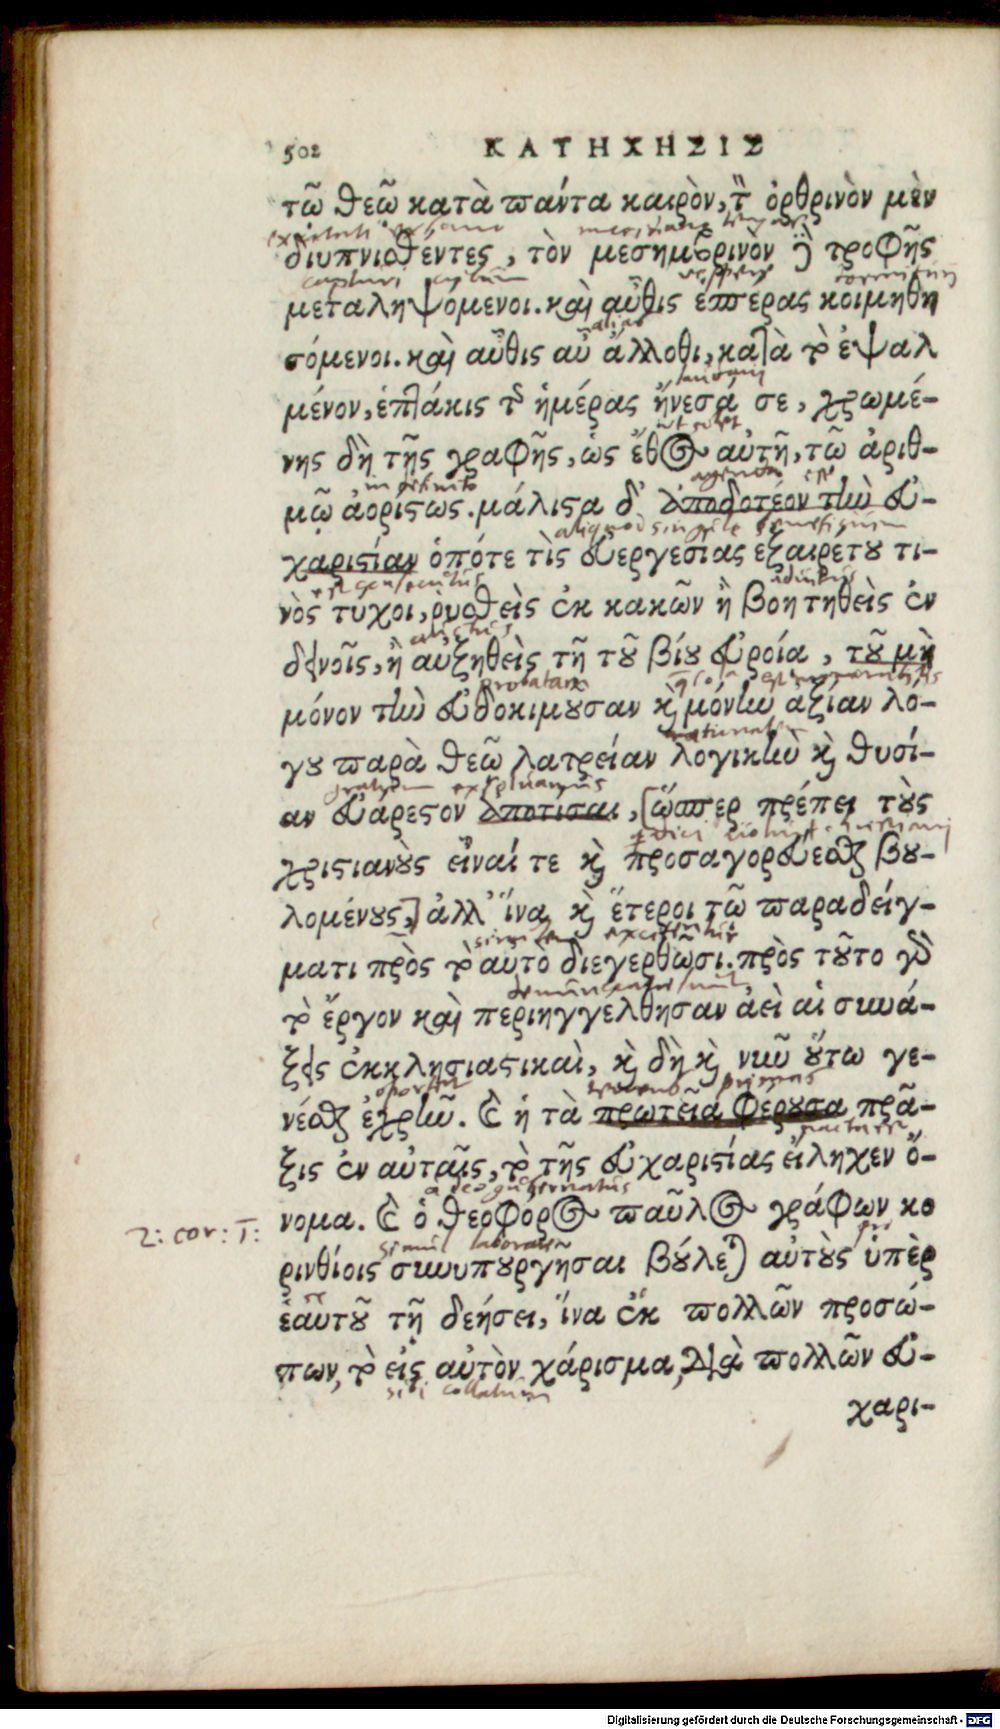 502 ΚΑΤΗΧΗΣΙΣ
τῶ θεῶ κατὰ πάντα καιρὸν, τ῀ ὀρθρινὸν μὲν
διυπνισθεντες, τὸν μεσημβρινὸν ἢ τροφῆς
μεταληψομενοι. καὶ αὖθις ἑσπερας κοιμηθη
σόμενοι. καὶ αὖθις αὖ ἄλλοθι, κατὰ τὸ ἐψαλ
alias
μένον, ἑπτάκις τ῀ ἡμέρας ᾔνεσά σε, χρωμέ-
νης δὴ τῆς γραφῆς, ὡς ἔθος αὐτῇ, τῶ ἀριθ-
ut solet
μῷ ἀορίστως. μάλιστα δ' ἀποδοτέον τὴν εὐ-
χαριστίαν ὁπότε τὶς εὐεργεσίας ἐξαιρέτου τι-
νὸς τυχοι, ῥυσθεὶς ἐκ κακῶν ἢ βοητηθεὶς ἐν
δεινοῖς, ἢ αὐξηθεὶς τῇ τοῦ βίου εὐροία, τοῦ μὴ
μόνον τὴν εὐδοκιμουσαν καὶ μόνην ἀξίαν λό-
probatam
γου παρὰ θεῶ λατρείαν λογικὴν καὶ θυσί-
αν εὐάρεστον ἀποτίσαι, [ὥσπερ πρέπει τοὺς
χριστιανοὺς εἶναί τε καὶ προσαγορεύεσθαι βου-
λομένους,] ἀλλ' ἵνα καὶ ἕτεροι τῶ παραδείγ-
ματι πρὸς τὸ αὐτὸ διεγερθῶσι. πρὸς τοῦτο γὰρ
τὸ ἔργον καὶ περιηγγελθησαν ἀεὶ αἱ συνά-
ξεις ἐκκλησιαστικαὶ, καὶ δὴ καὶ νῦν οὕτω γε-
νέσθαι ἐχρῆν. καὶ ἡ τὰ πρωτεῖα φέρουσα πρᾶ-
oportet primas
ξις ἐν αὐταῖς, τὸ τῆς εὐχαριστίας εἴληχεν ὄ-
νομα. καὶ ὁ θεοφόρος παῦλος γράφων κο
a deo gubernatus
2: cor: 1:
ρινθίοις συνυπουργῆσαι βούλεται αὐτοὺς ὑπὲρ
simul
ἑαυτοῦ τῇ δεήσει, ἵνα ἐκ πολλῶν προσώ-
πων, τὸ εἰς αὐτὸν χάρισμα, διὰ πολλῶν εὐ-
sibi collatum
χαρι-
Digitalisierung gefördert durch die Deutsche Forschungsgemeinschaft - DFG